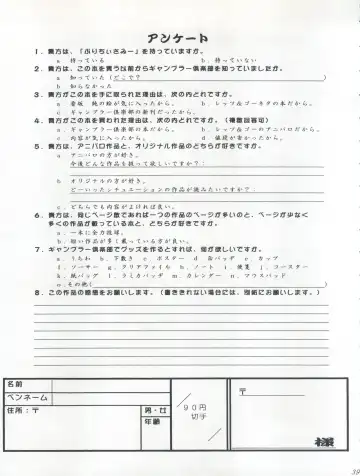 アンケート
1．貴方は、「ぷりちぃさみー」を持っていますか。
a 持っている　b．持っていない
2．貴方は、この本を買う以前からギャンブラー倶楽部を知っていましたか。
a 知っていた(どこで？　)
b 知らなかった
3．貴方がこの本を手に取られた理由は、次の内どれです。
a 看板 純の絵が気に入ったから。　b．レッツ&ゴーネタの本だから。
c ギャンブラー倶楽部の新刊だったから。
4．貴方がこの本を買われた理由は、次の内どれです。(複数回答可)
a．ギャンブラー倶楽部の本だから。　b．レッツ&ゴーのアニパロだから。
c 内容が気に入ったから。　d 値段が安かったから。
5．貴方は、アニパロ作品と、オリジナル作品のどちらが好きですか。
a アニパロの方が好き。
今後どんな作品を扱って欲しいですか？
b オリジナルの方が好き。
どーいったシチュエーションの作品が読みたいですか？
c．どちらでも内容がよければ良い。
6．貴方は、同じページ数であれば一つの作品のページが多いのと、ページが少なく
多くの作品が載っている本と、どちらが好きですか。
a．一本に全力投球。
b．短い作品が多く載っている方が良い。
7．ギャンブラー倶楽部でグッズを作るとすれば、何が欲しいですか。
a．うちわ　b．下敷き　c．ポスター　d 缶バッヂ　e カップ
f．ソーサー　g．クリアファイル　h．ノート　i．便箋　j．コースター
k．紙バッグ　l．ラミカバッヂ　m．カレンダー　n．マウスパッド
o．その他(　)
8．この作品の感想をお願いします。(書ききれない場合には、別紙にお願いします。)
名前
ペンネーム
住所：〒
男・女
年齢
90円
切手
〒
様
39